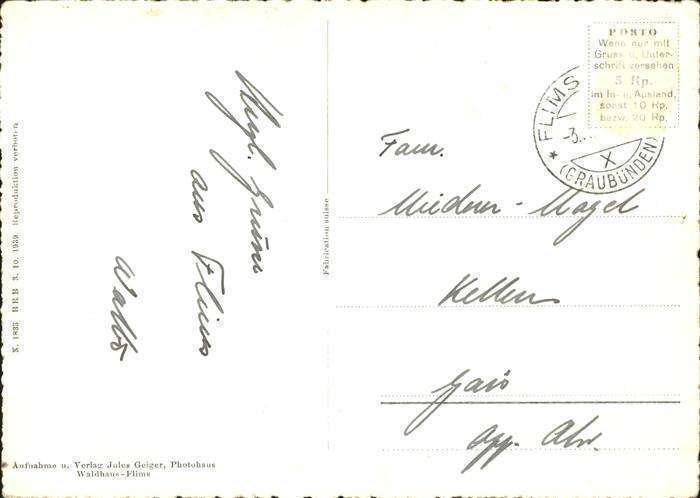 Hrzl. Grüsse
aus Flims
Walti
Fam.
Miederer-Nagel
Keller
Gais
App. Abr.
PORTO
Wenn nur mit
Gruss u. Unter-
schrift versehen
5 Rp.
im In- u. Ausland,
sonst 10 Rp.
bezw. 20 Rp.
FLIMS
-3.
X
* (GRAUBÜNDEN)
Fabrication suisse
N. 1833 BRB 3. 10. 1939. Reproduktion verboten
Aufnahme u. Verlag Jules Geiger, Photohaus
Waldhaus-Flims